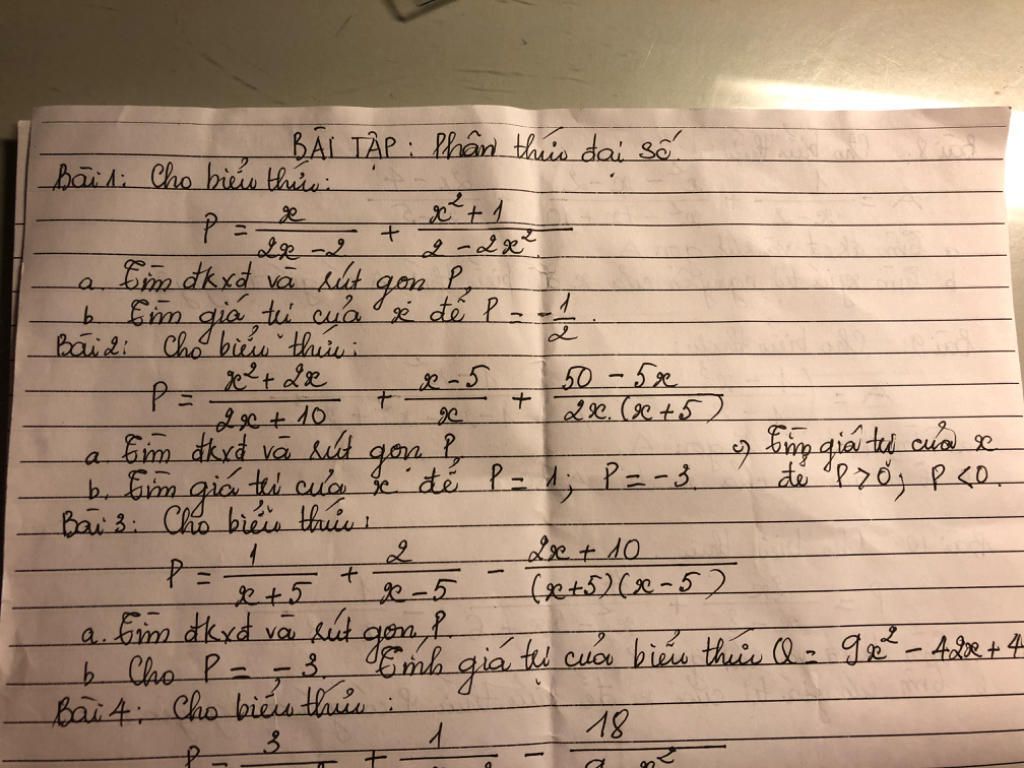 BÀI TẬP: Phân thức đại số.
Bài 1: Cho biểu thức:
P = x/(2x - 2) + (x² + 1)/(2 - 2x²)
a. Tìm đkxđ và rút gọn P.
b. Tìm giá trị của x để P = -1/2.
Bài 2: Cho biểu thức:
P = (x² + 2x)/(2x + 10) + (x - 5)/x + (50 - 5x)/(2x.(x + 5))
a. Tìm đkxđ và rút gọn P.
b. Tìm giá trị của x để P = 1; P = -3.
c) Tìm giá trị của x
để P > 0; P < 0.
Bài 3: Cho biểu thức:
P = 1/(x + 5) + 2/(x - 5) - (2x + 10)/((x+5)(x - 5))
a. Tìm đkxđ và rút gọn P.
b Cho P = -3. Tính giá trị của biểu thức Q = 9x² - 42x + 4
Bài 4: Cho biểu thức:
P = 3 + 1 - 18